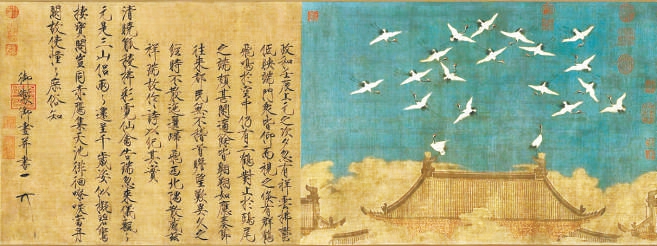 政和壬辰上元之次夕忽有祥雲拂鬱
低映端門衆皆仰而視之倏有群鶴
飛鳴於空中仍有二鶴對止於鴟尾
之端頗甚閑適餘皆翱翔如應奏節
往來都民無不稽首瞻望歎異久之
經時不散迤邐歸飛西北隅散感茲
祥瑞故作詩以紀其實
清曉觚稜拂彩霓仙禽告瑞忽來儀飄飄
元是三山侶兩兩還呈千歲姿似擬碧鸞
棲寶閣豈同赤鴈集天池徘徊嘹唳當丹
闕故使憧憧庶俗知
御製御畫并書